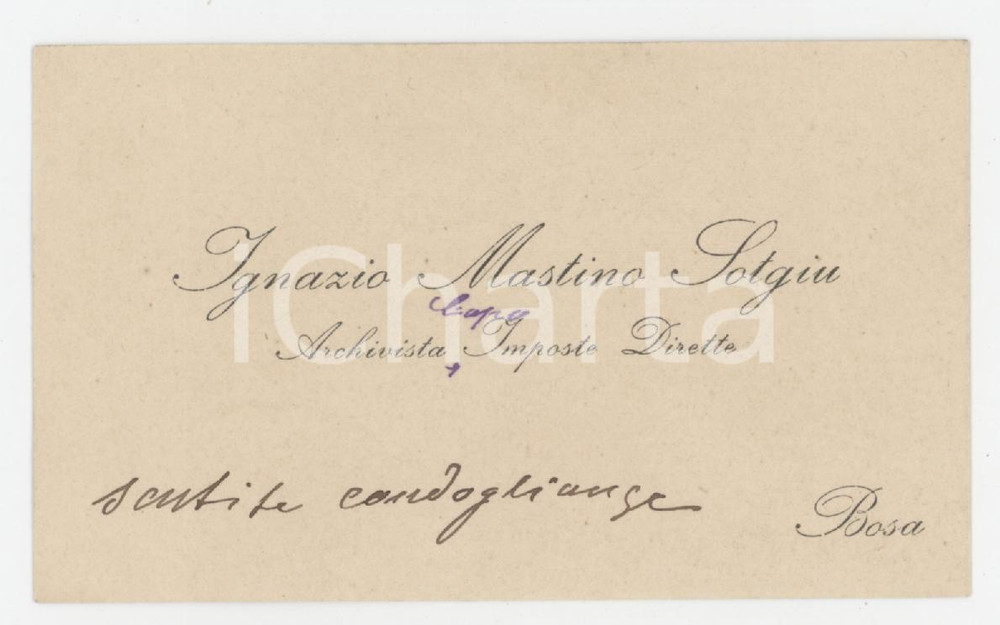 Ignazio Mastino Sotgiu
Capo
Archivista Imposte Dirette
sentite condoglianze
Bosa
iCharta